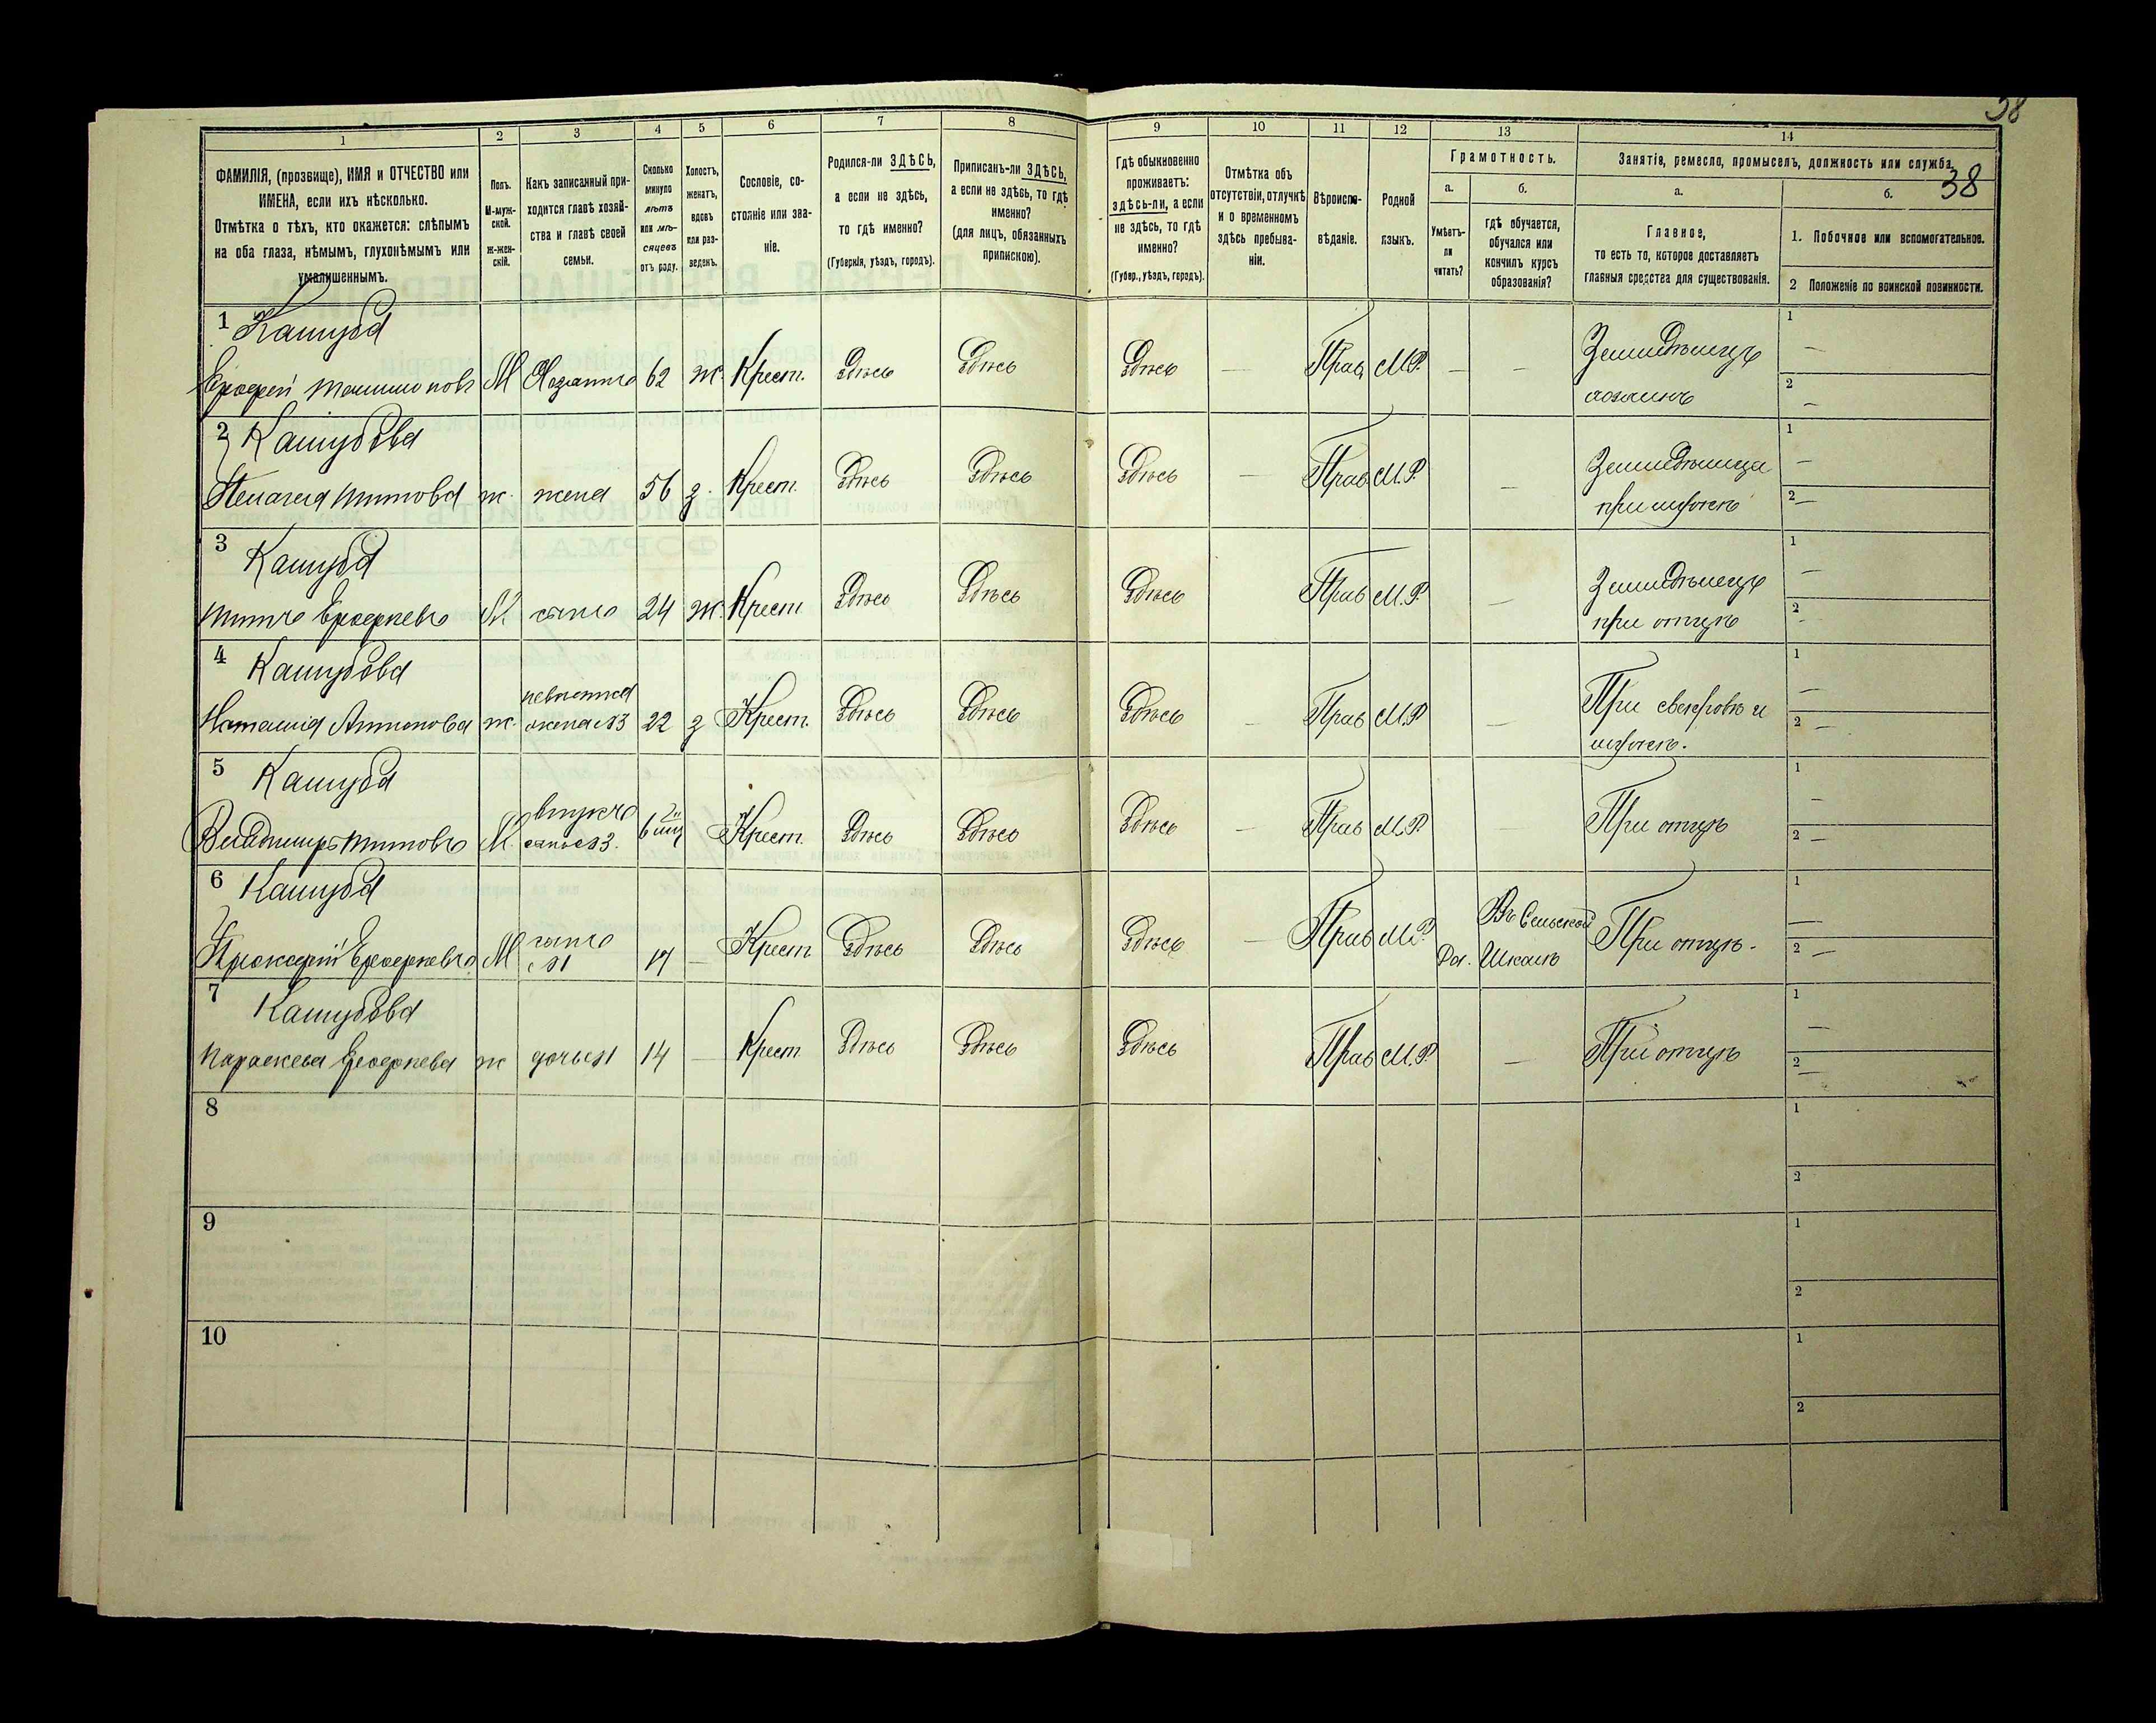 38
1
2
3
4
5
6
7
8
9
10
11
12
13
14
ФАМИЛІЯ, (прозвище), ИМЯ и ОТЧЕСТВО или
ИМЕНА, если ихъ нѣсколько.
Отмѣтка о тѣхъ, кто окажется: слѣпымъ
на оба глаза, нѣмымъ, глухонѣмымъ или
умалишеннымъ.
Полъ.
М-муж-
ской.
ж-жен-
скій.
Какъ записанный при-
ходится главѣ хозяй-
ства и главѣ своей
семьи.
Сколько
минуло
лѣтъ
или мѣ-
сяцевъ
отъ роду.
Холостъ,
женатъ,
вдовъ
или раз-
веденъ.
Сословіе, со-
стояніе или зва-
ніе.
Родился-ли ЗДѢСЬ,
а если не здѣсь,
то гдѣ именно?
(Губернія, уѣздъ, городъ).
Приписанъ-ли ЗДѢСЬ,
а если не здѣсь, то гдѣ
именно?
(для лицъ, обязанныхъ
припискою).
Гдѣ обыкновенно
проживаетъ:
здѣсь-ли, а если
не здѣсь, то гдѣ
именно?
(Губер., уѣздъ, городъ).
Отмѣтка объ
отсутствіи, отлучкѣ
и о временномъ
здѣсь пребыва-
ніи.
Вѣроиспо-
вѣданіе.
Родной
языкъ.
Грамотность.
а.
Умѣетъ-
ли
читать?
б.
гдѣ обучается,
обучался или
кончилъ курсъ
образованія?
Занятіе, ремесло, промыселъ, должность или служба.
38
а.
Главное,
то есть то, которое доставляетъ
главныя средства для существованія.
б.
1. Побочное или вспомогательное.
2 Положеніе по воинской повинности.
1 Кашуба
М 62 ж. Крест. Здѣсь Здѣсь Здѣсь — Прав. М.Р. — —
Земледѣлецъ
хозяинъ
1 —
2 —
2 Кашубова
Пелагея Титова ж. жена 56 з. Крест. Здѣсь Здѣсь Здѣсь — Прав М.Р. —
Земледѣлица
при мужѣ
1 —
2 —
3 Кашуба
Титъ Ерофеевъ М сынъ 24 ж. Крест Здѣсь Здѣсь Здѣсь Прав М.Р. —
Земледѣлецъ
при отцѣ
1 —
2 -
4 Кашубова
Наталія Антонова ж. невѣстка
жена №3 22 з Крест. Здѣсь Здѣсь Здѣсь — Прав М.Р —
При свекровѣ и
мужѣ.
1 —
2 —
5 Кашуба
Владимиръ Титовъ М. внукъ
сынъ №3. Крест. Здѣсь Здѣсь Здѣсь — Прав М.Р. —
При отцѣ
1 —
2 —
6 Кашуба
Ерофеевъ М сынъ
№1 17 — Крест Здѣсь Здѣсь Здѣсь — Прав М.Р.
Да. Въ Сельской
Школѣ
При отцѣ.
1 —
2 —
7 Кашубова
Параскева Ерофеева ж дочь №1 14 — Крест Здѣсь Здѣсь Здѣсь Прав М.Р. —
При отцѣ
1 —
2 —
8
1
2
9
1
2
10
1
2